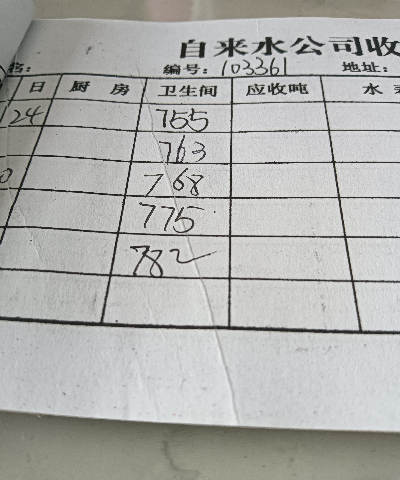 自来水公司收
编号: 103361 地址:
日 厨房 卫生间 应收吨 水
24 755
763
0 768
775
782